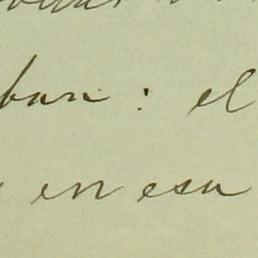 ban : el
en esa